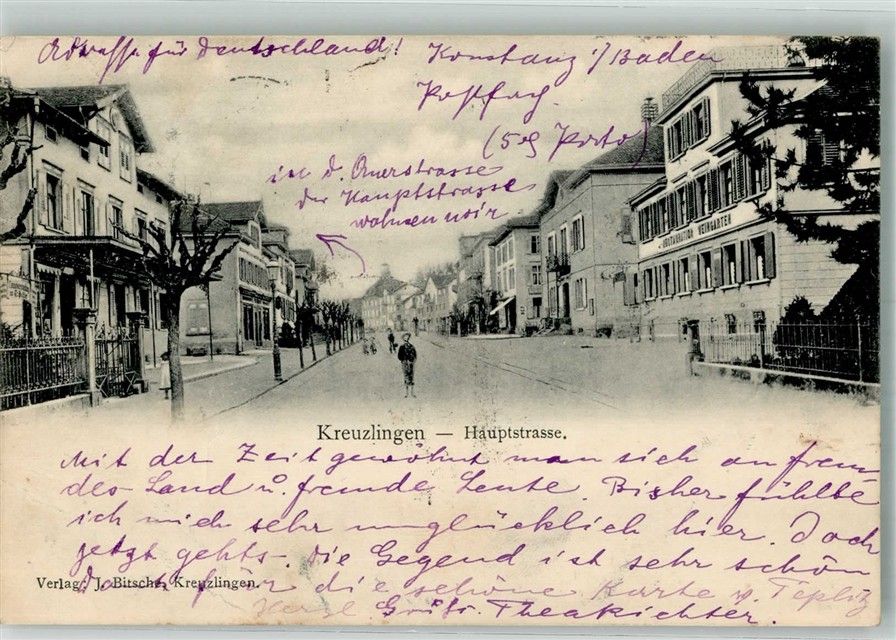 Adresse für Deutschland! Konstanz i/Baden
Postfach.
(5 Porto)
in d. Querstrasse
der Hauptstrasse
wohnen wir
RESTAURATION WEINGARTEN
Kreuzlingen — Hauptstrasse.
Mit der Zeit gewöhnt man sich an frem
des Land u. fremde Leute. Bisher fühlte
ich mich sehr unglücklich hier. Doch
jetzt gehts. Die Gegend ist sehr schön
Verlag: J. Bitsche, Kreuzlingen.
Dank für die schöne Karte v. Teplitz
Herzl Grüße